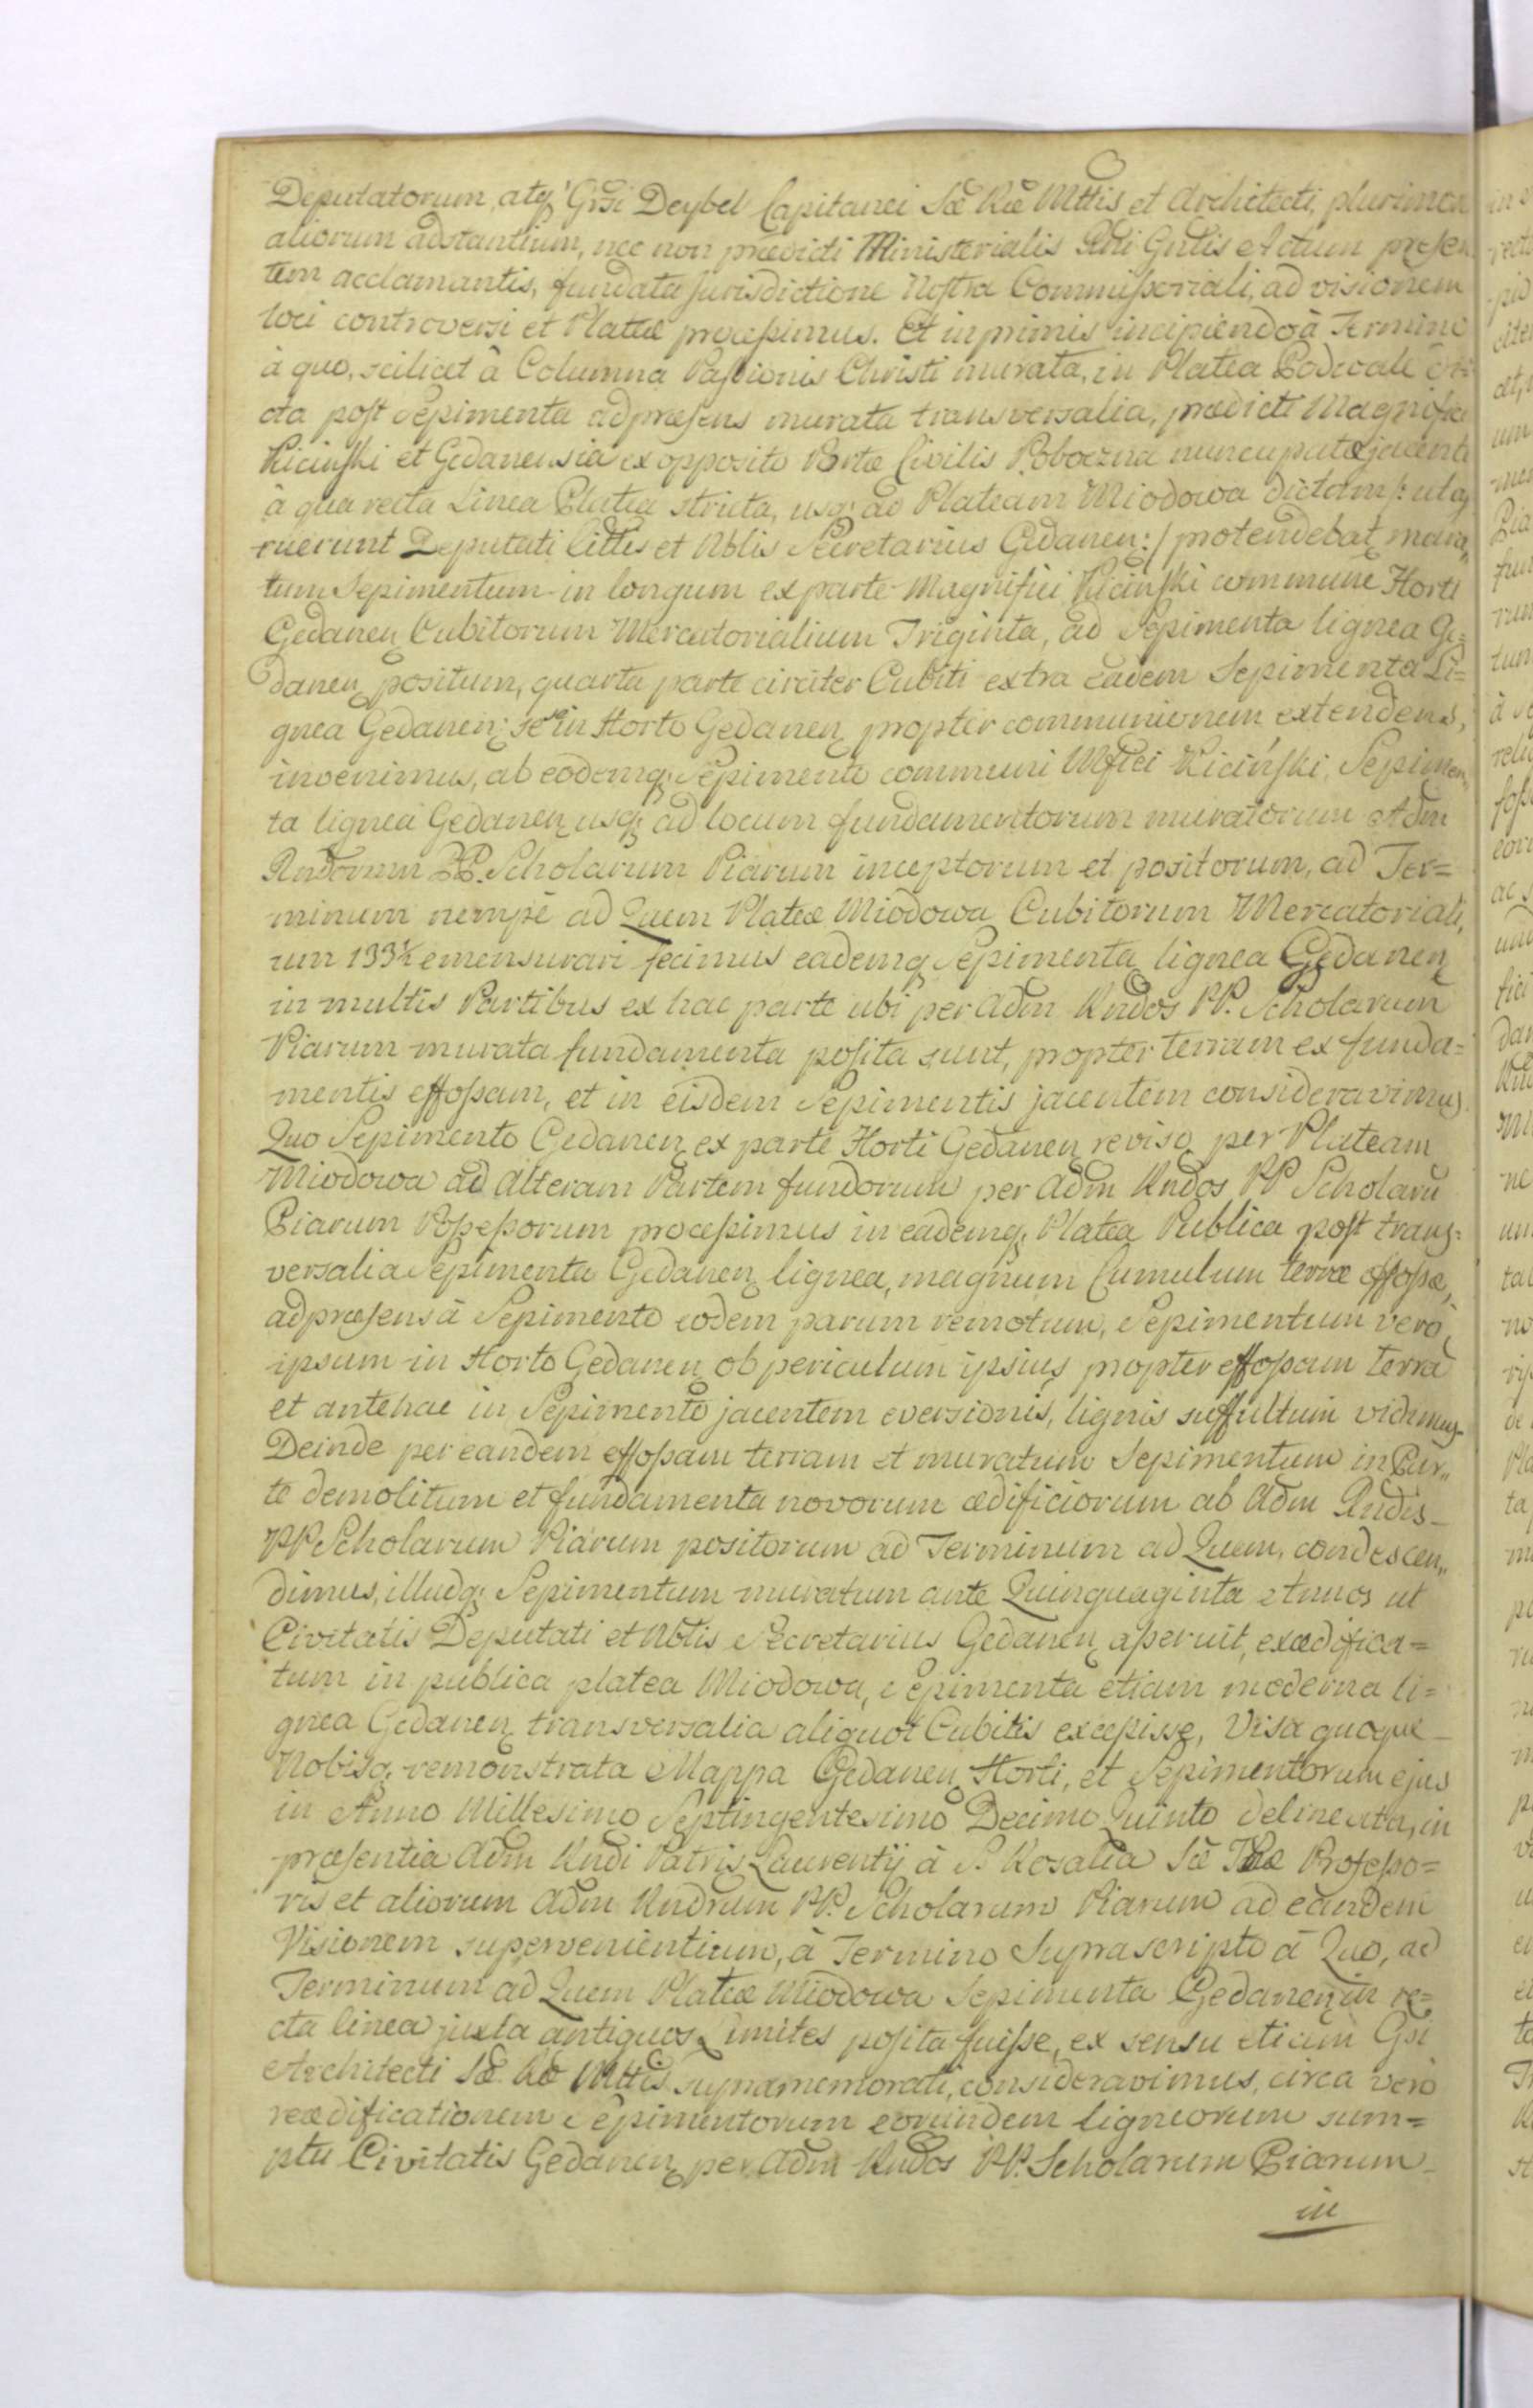 Deputatorum, atq; Grsi Deybel Capitanei Sæ Ræ Mttis et Architecti, plurimor
aliorum adstantium, nec non prædicti Ministerialis Rni Gnlis Actum presen
tem acclamantis, fundata Jurisdictione Nostra Commissoriali, ad visionem
loci controversi et Plateæ processimus. Et inprimis incipiendo à Termino
à quo, scilicet à Columna Passionis Christi murata, in Platea Podwale
cta post Sepimenta adpræsens murata transversalia, prædicti Magnifici
Kicinski et Gedanensia ex opposito Portæ Civilis Poboczna nuncupatæ jacenti
à qua recta Linea Platea stricta, usq; ad Plateam Miodowa dictam /: uta
ruerunt Deputati Cittis et Nblis Secretarius Gedanen: / protendebat, mura,,
tum Sepimentum in longum ex parte Magnifici Kicinski commune Horti
Gedanen Cubitorum Mercatorialium Triginta, ad Sepimenta lignea Ge=
danen positum, quarta parte circiter Cubiti extra eadem Sepimenta Li=
gnea Gedanen: se in Horto Gedanen propter communionem extendens,
invenimus, ab eodemq; Sepimento communi Mfici Kiciński, Sepimen,,
ta lignea Gedanen usq; ad locum fundamentorum muratorum Adm
Rndorum PP. Scholarum Piarum inceptorum et positorum, ad Ter=
minum nempè ad Quem Plateæ Miodowa Cubitorum Mercatoriali,,
um 133½ emensurari fecimus eademq; Sepimenta lignea Gedanen
in multis Partibus ex hac parte ubi per Adm Rndos PP. Scholarum
Piarum murata fundamenta posita sunt, propter terram ex funda=
mentis effossam, et in eisdem Sepimentis jacentem consideravimus.
Quo Sepimento Gedanen ex parte Horti Gedanen reviso, per Plateam
Miodowa ad alteram Partem fundorum per Adm Rndos PP Scholarū
Piarum Possessorum processimus in eademq; Platea Publica post trans=
versalia Sepimenta Gedanen lignea, magnum Cumulum terræ effossæ,
adpræsens à Sepimento eodem parum remotum, Sepimentum vero
ipsum in Horto Gedanen ob periculum ipsius propter effossam terrā
et antehac in Sepimento jacentem eversionis, lignis suffultum vidimus.
Deinde per eandem effossam terram et muratum Sepimentum in Par,,
te demolitum et fundamenta novorum ædificiorum ab Adm Rndis
PP Scholarum Piarum positorum ad Terminum ad Quem, condescen,,
dimus, illudq; Sepimentum muratum ante Quinquaginta Annos ut
Civitatis Deputati et Nblis Secretarius Gedanen asseruit, exædifica=
tum in publica platea Miodowa, Sepimenta etiam moderna li=
gnea Gedanen transversalia aliquot Cubitis excepisse, Visa quoque
Nobisq; remonstrata Mappa Gedanen Horti, et Sepimentorum ejus
in Anno Millesimo Septingentesimo Decimo Quinto delineata, in
præsentia Adm Rndi Patris Laurentij à S. Rosalia Sæ Thæ Professo=
ris et aliorum Adm Rndrum PP. Scholarum Piarum ad eandem
Visionem supervenientium, à Termino Suprascripto à Quo, ad
Terminum ad Quem Plateæ Miodowa Sepimenta Gedanen in re=
cta linea juxta antiquos Limites posita fuisse, ex sensu etiam Gsi
Architecti Sæ Ræ Mttis supramemorati, consideravimus, circa verò
reædificationem Sepimentorum eorundem ligneorum sum=
ptu Civitatis Gedanen per Adm Rndos PP. Scholarum Piarum
in